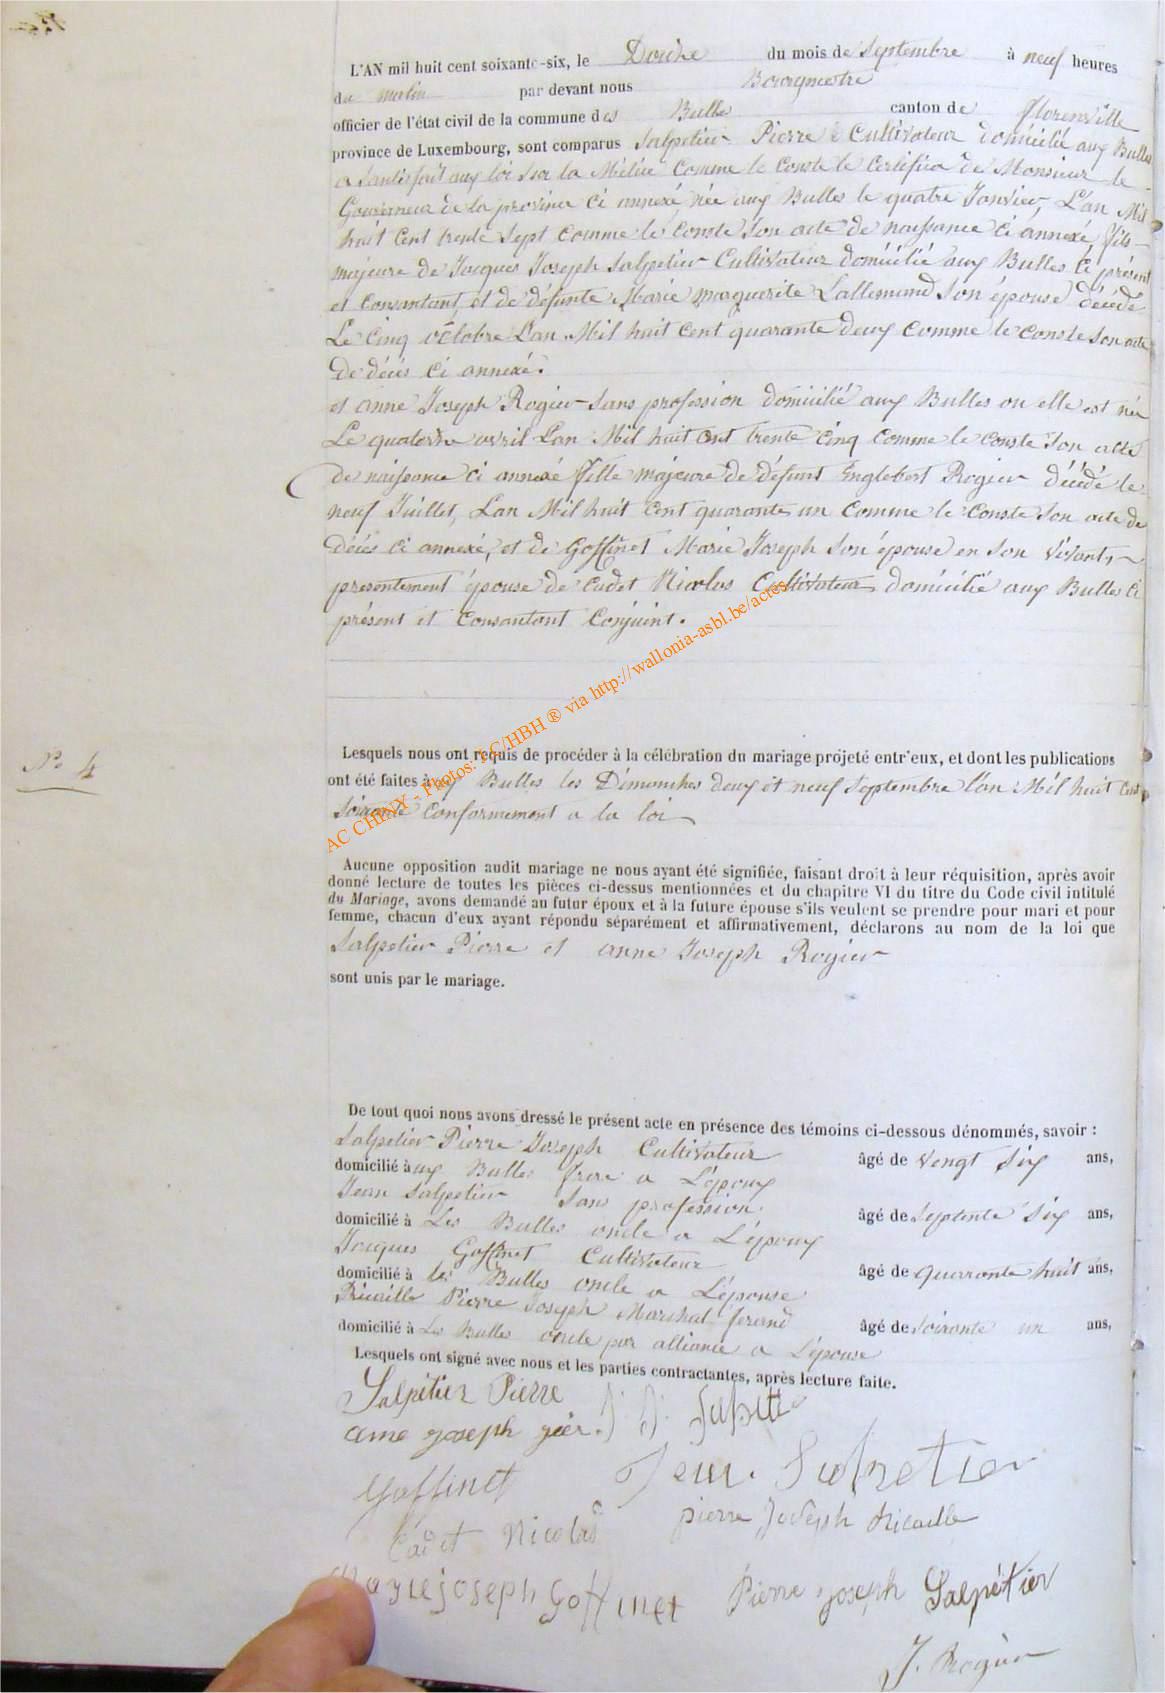 L'AN mil huit cent soixante-six, le Douze du mois de Septembre à neuf heures
du matin par devant nous Bourgmestre
officier de l'état civil de la commune des Bulle canton de florenville
province de Luxembourg, sont comparus Salpetier Pierre Cultivateur domicilié aux Bulles
a Santisfait aux loi sur la Milice Comme le Conste le Certifica de Monsieur le
Gouverneur de la province Ci annexé, née aux Bulles le quatre Janvier, L'an Mil
huit Cent trente Sept Comme le Conste Son acte de naissance Ci annexé fils
majeure de Jacques Joseph Salpetier Cultivateur domicilié aux Bulles Ci présent
et Consantant, et de défunte Marie Marguerite Lallemand Son épouse décédé
Le Cinq octobre L'an Mil huit Cent quarante deux Comme le Conste Son acte
de décés Ci annexé.
et anne Joseph Rogier Sans profession domicilié aux Bulles ou elle est née
Le quatorze avril L'an Mil huit Cent trente Cinq Comme le Conste Son acte
de naissance Ci annexé fille majeure de défunt Englebert Rogier décédé le
neuf Juillet, L'an Mil huit Cent quarante un Comme le Conste Son acte de
Décés Ci annexé, et de Goffinet Marie Joseph Son épouse en Son Vivant,
presentement épouse de Cadet Nicolas Cultivateur domicilié aux Bulles Ci
présent et Consantant Conjoint.
Lesquels nous ont requis de procéder à la célébration du mariage projeté entr'eux, et dont les publications
No 4
ont été faites à aux Bulles les Dimanches deux et neuf Septembre l'an Mil huit Cent
Soixante Conformement a la loi
Aucune opposition audit mariage ne nous ayant été signifiée, faisant droit à leur réquisition, après avoir
donné lecture de toutes les pièces ci-dessus mentionnées et du chapitre VI du titre du Code civil intitulé
du Mariage, avons demandé au futur époux et à la future épouse s'ils veulent se prendre pour mari et pour
femme, chacun d'eux ayant répondu séparément et affirmativement, déclarons au nom de la loi que
Salpetier Pierre et anne Joseph Rogier
sont unis par le mariage.
De tout quoi nous avons dressé le présent acte en présence des témoins ci-dessous dénommés, savoir :
Salpetier Pierre Joseph Cultivateur âgé de Vengt Six ans,
domicilié à aux Bulles frere a L'époux
Jean Salpetier Sans profession. âgé de Septente Six ans,
domicilié à Les Bulles oncle a L'époux
Jacques Goffinet Cultivateur âgé de quarante huit ans,
domicilié à les Bulles oncle a L'épouse
Dricaille Pierre Joseph Marchal ferand âgé de Soixante un ans,
domicilié à Les Bulles oncle par alliance a L'épouse
Lesquels ont signé avec nous et les parties contractantes, après lecture faite.
Salpétier Pierre J. J. Salpetie
anne joseph gier
Goffinet Jean Salpetier
Cadet Nicolas pierre Joseph dricaille
Marie joseph Goffinet Pierre joseph Salpétier
J. Rogier
AC CHINY - Photos: AC/HBH ® via http://wallonia-asbl.be/actes